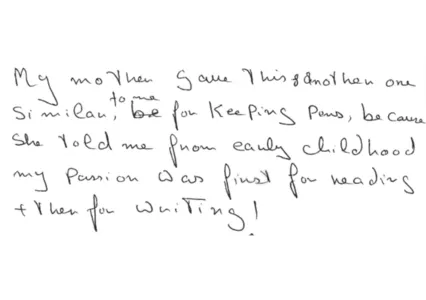 My mother gave this & another one
similar, to me be for keeping pens, because
she told me from early childhood
my passion was first for reading
+ then for writing!